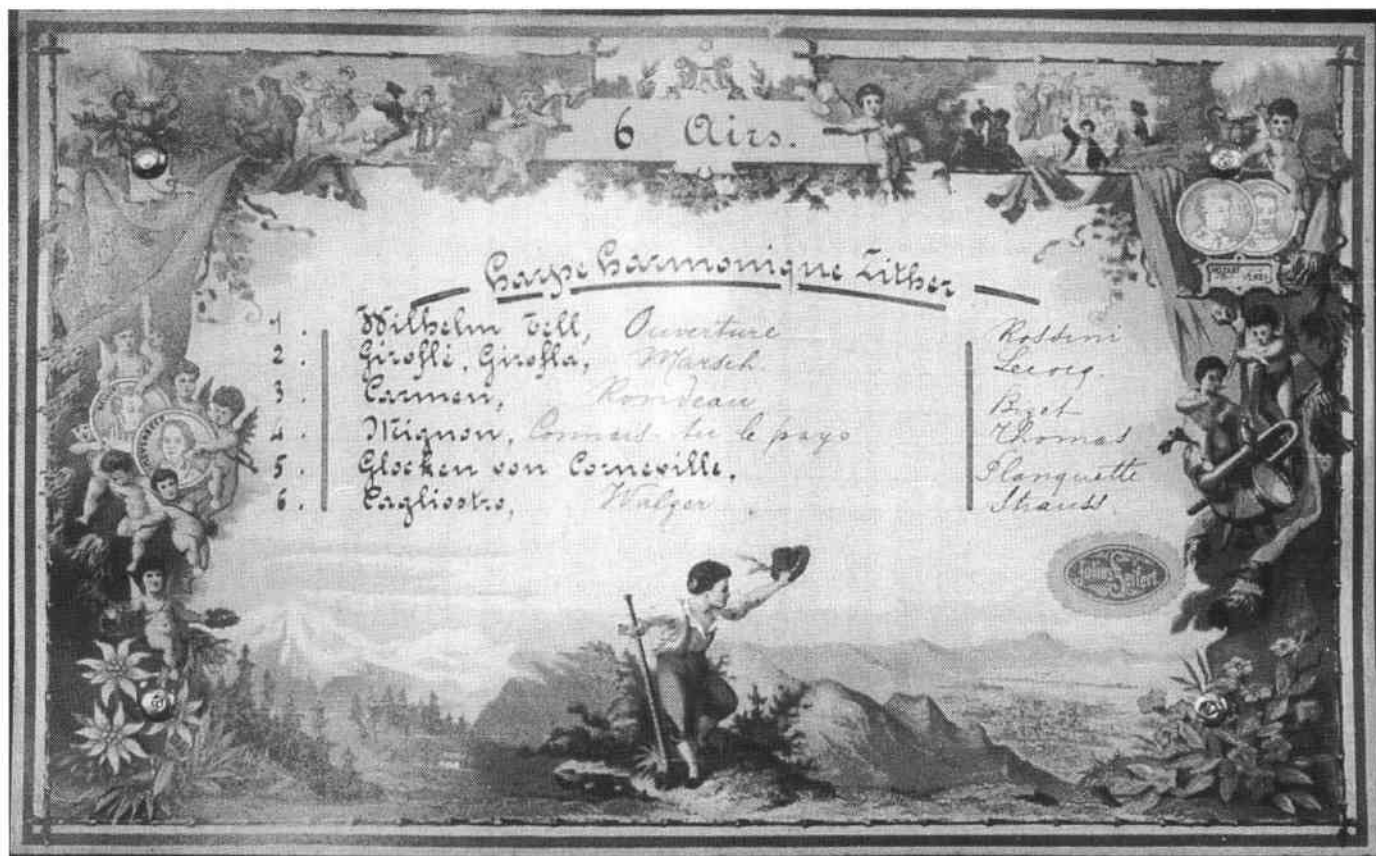 6 Airs.
Harpe Harmonique Zither
1. Wilhelm Tell, Ouverture Rossini
2. Giroflé, Girofla, Marsch. Lecocq.
3. Carmen, Rondeau Bizet
4. Mignon, Connais-tu le pays Thomas
5. Glocken von Corneville. Planquette
6. Cagliostro, Walzer Strauss.
Julius Seifert
MOZART